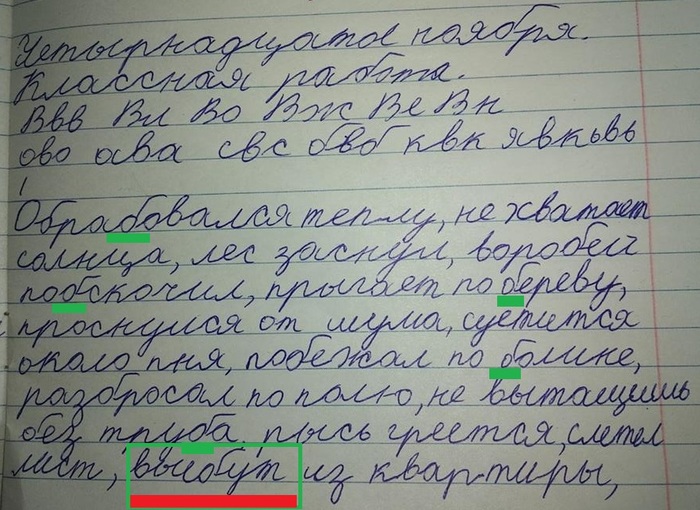 Четырнадцатое ноября.
Классная работа.
Ввв Вл Во Вж Ве Вн
ово ава свс бвб квк явкьвь
1
Обрабовался теплу, не хватает
солнца, лес заснул, воробей
побскочил, прыгает по береву,
проснулся от шума, суетится
около пня, побежал по болине,
разбросал по полю, не вытащишь
без труба, рысь греется, слетел
лист, выебут из квартиры,